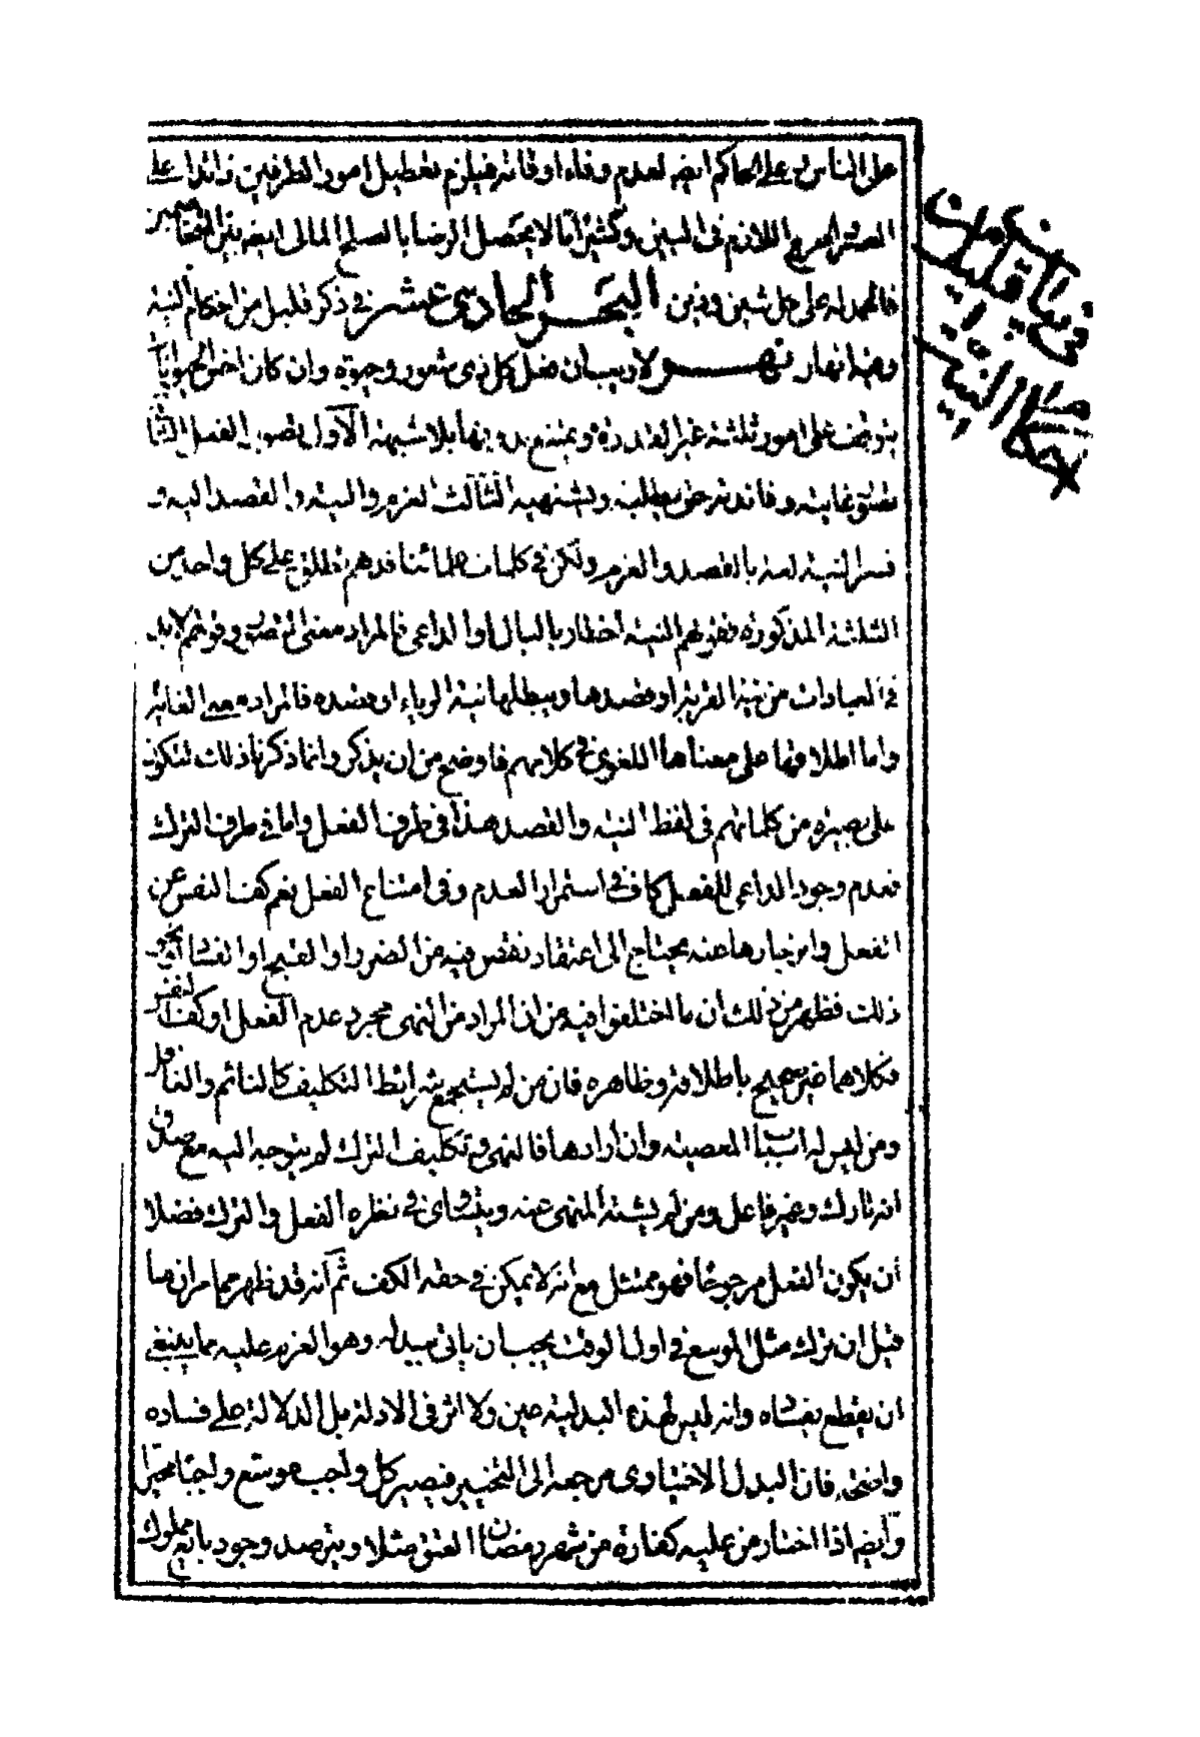 على الناس بل على الحاكم ايضا لعدم وفاء اوقاته فيلزم تعطيل امور الطرفين زائدا على
العسر الحرج اللازم في البين وكثيرا ما لا يحصل الرضا بالصلح المالى ايضا بين المتخاصمين
فالحمد له على كل شين وزين البحر الحادى عشر في ذكر قليل من احكام النية
وفيه انهار نهر لا ريب ان فعل كل ذى شعور وحيوة وان كان اخس الحيوانات
يتوقف على امور ثلثة غير القدرة ويمتنع بدونها بلا شبهة الاول تصور الفعل الثانى
تصور غايته وفائدته حتى يطلبه ويشتهيه الثالث العزم والنية والقصد اليه و
فسر النية لغة بالقصد والعزم ولكن في كلمات علمائنا قدهم تطلق على كل واحد من
الثلثة المذكورة فقولهم النية اخطار بالبال او الداعى فالمراد معنى التصور وقولهم لا بد
في العبادات من نية القربة او قصدها ويبطلها نية الرياء او قصده فالمراد معنى الغاية
واما اطلاقها على معناها اللغوى في كلامهم فاوضح من ان يذكر وانما ذكرنا ذلك لتكون
على بصيرة من كلماتهم في لفظ النية والقصد هذا في طرف الفعل واما في طرف الترك
فعدم وجود الداعى للفعل كاف في استمرار العدم وفى امتناع الفعل نعم كف النفس عن
الفعل وانزجارها عنه يحتاج الى اعتقاد نقص فيه من الضرر او القبح او الفساد نحو
ذلك فظهر من ذلك ان ما اختلفوا فيه من ان المراد من النهى مجرد عدم الفعل او كف النفس
فكلاهما غير صحيح باطلاقه وظاهره فان من لم يستجمع شرائط التكليف كالنائم والغافل
ومن ليس له اسباب المعصية وان ارادها فالنهى وتكليف الترك لم يتوجه اليه مع صدق
انه تارك وغير فاعل ومن لم يشته المنهى عنه ويتساوى في نظره الفعل والترك فضلا
ان يكون الفعل مرجوحا فهو ممتثل مع انه لا يمكن في حقه الكف ثم انه قد ظهر مما مر ان ما
قيل ان ترك مثل الموسع في اول الوقت يجب ان ياتى ببدله وهو العزم عليه مما ينبغى
ان يقطع بفساده وانه ليس لهذه البدلية عين ولا اثر في الادلة بل الدلالة على فساده
واضحة فان البدل الاختيارى مرجعه الى التخيير فيصير كل واجب موسع واجبا مخيرا
وايضا اذا اختار من عليه كفارة من شهر رمضان العتق مثلا ويترصد وجود بائع مملوك
في بيان قليل من
احكام النية